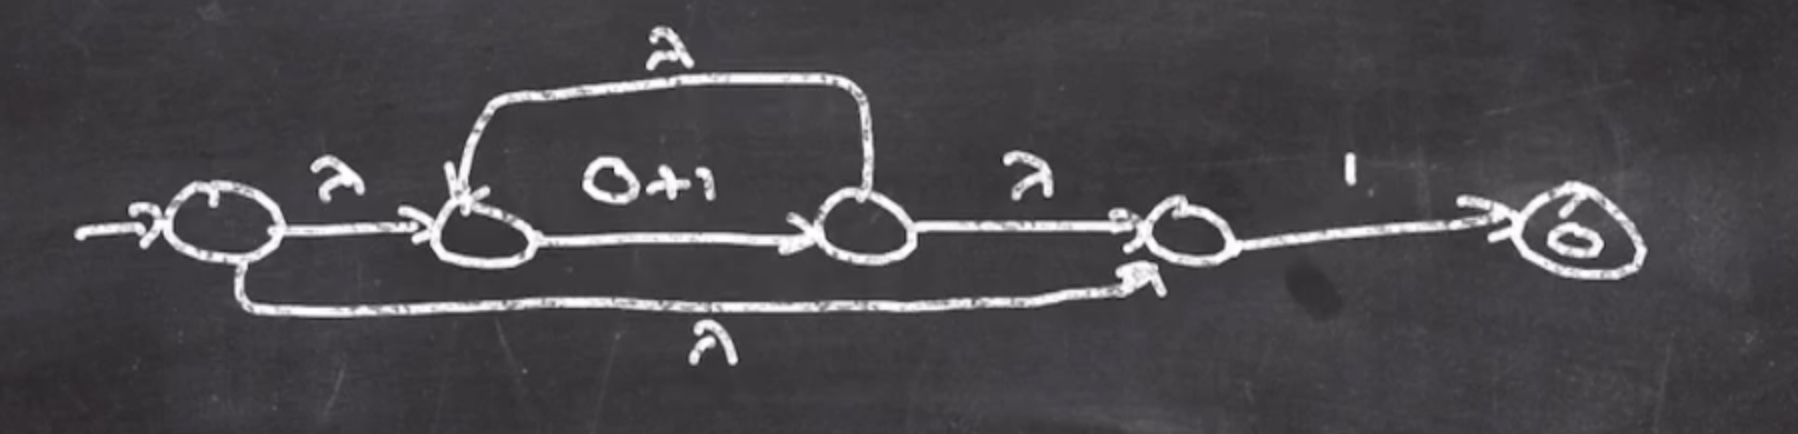 λ
λ
0+1
λ
1
λ